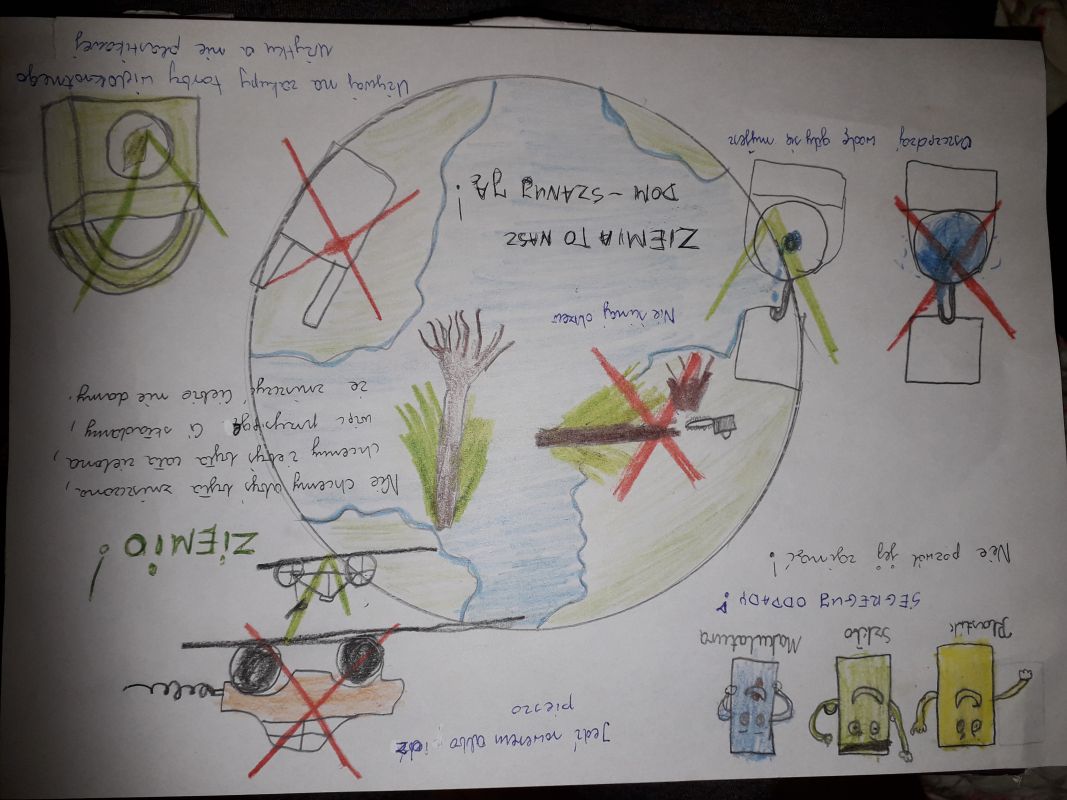 Plastik
Szkło
Makulatura
SEGREGUJ ODPADY!
Nie pozwól jej zginąć!
Jedź rowerem albo idź
pieszo
ZIEMIO!
Nie chcemy abyś była zniszczona,
chcemy żebyś była cała zielona,
więc przysięgę Ci składamy,
że zniszczyć Ciebie nie damy.
Nie ścinaj drzew
ZIEMIA TO NASZ
DOM - SZANUJ JĄ!
Oszczędzaj wodę gdy się myjesz
Używaj na zakupy torby wielokrotnego
użytku a nie plastikowej